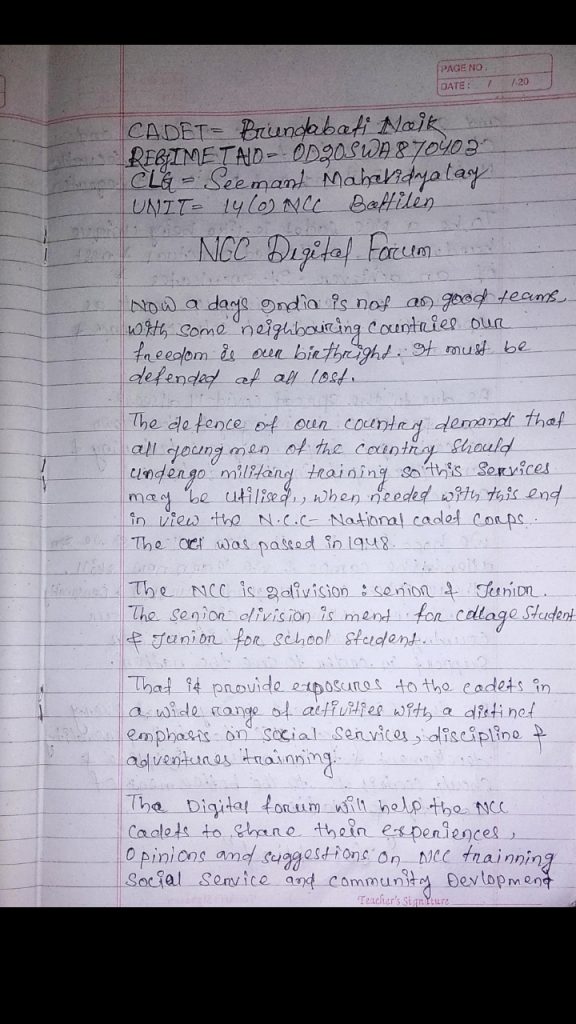 PAGE NO.
DATE: / /20
CADET = Brundabati Naik
REGIMETAIO = OD20SWA870403
CLG = Seemant Mahavidyalay
UNIT = 14(O) NCC Battilen
NGC Digital Forum
Now a days India is not an good teams
with some neighbouring countries our
freedom is our birthright. It must be
defended at all lost.
The defence of our country demands that
all young men of the country should
undergo military training so this services
may be utilised,, when needed with this end
in view the N.C.C- National cadet corps.
The act was passed in 1948.
The NCC is 2division : senior & Junior.
The senior division is ment for collage student
& Junior for school student.
That it provide exposures to the cadets in
a wide range of activities with a distinct
emphasis on social services, discipline &
adventures trainning.
The Digital forum will help the NCC
cadets to share their experiences,
opinions and suggestions on NCC trainning
social service and community Devlopment
Teacher's Signature